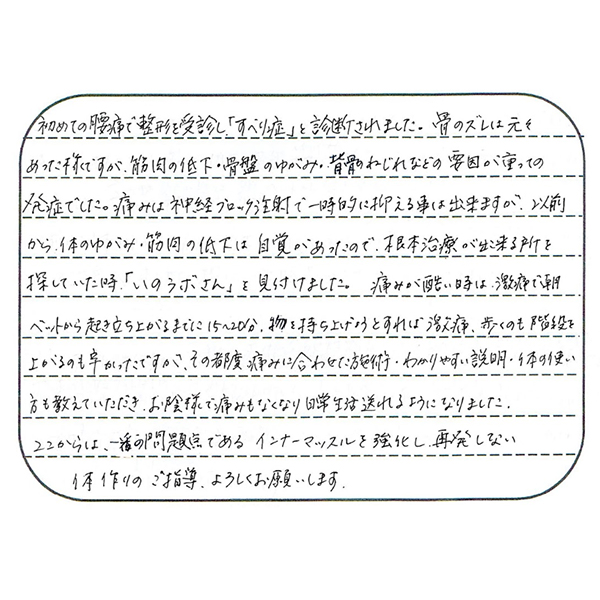 初めての腰痛で整形を受診し「すべり症」と診断されました。骨のズレは元々
あった様ですが、筋肉の低下・骨盤のゆがみ・背骨のねじれなどの要因が重っての
発症でした。痛みは神経ブロック注射で一時的に抑える事は出来ますが、以前
から、体のゆがみ・筋肉の低下は自覚があったので、根本治療が出来る所を
探していた時、「いのラボさん」を見付けました。痛みが酷い時は、激痛で朝
ベットから起き立ち上がるまでに15〜20分、物を持ち上げようとすれば激痛、歩くのも階段を
上がるのも辛かったですが、その都度痛みに合わせた施術・わかりやすい説明・体の使い
方も教えていただき、お陰様で痛みもなくなり日常生活送れるようになりました。
ココからは、一番の問題点であるインナーマッスルを強化し、再発しない
体作りのご指導、よろしくお願いします。